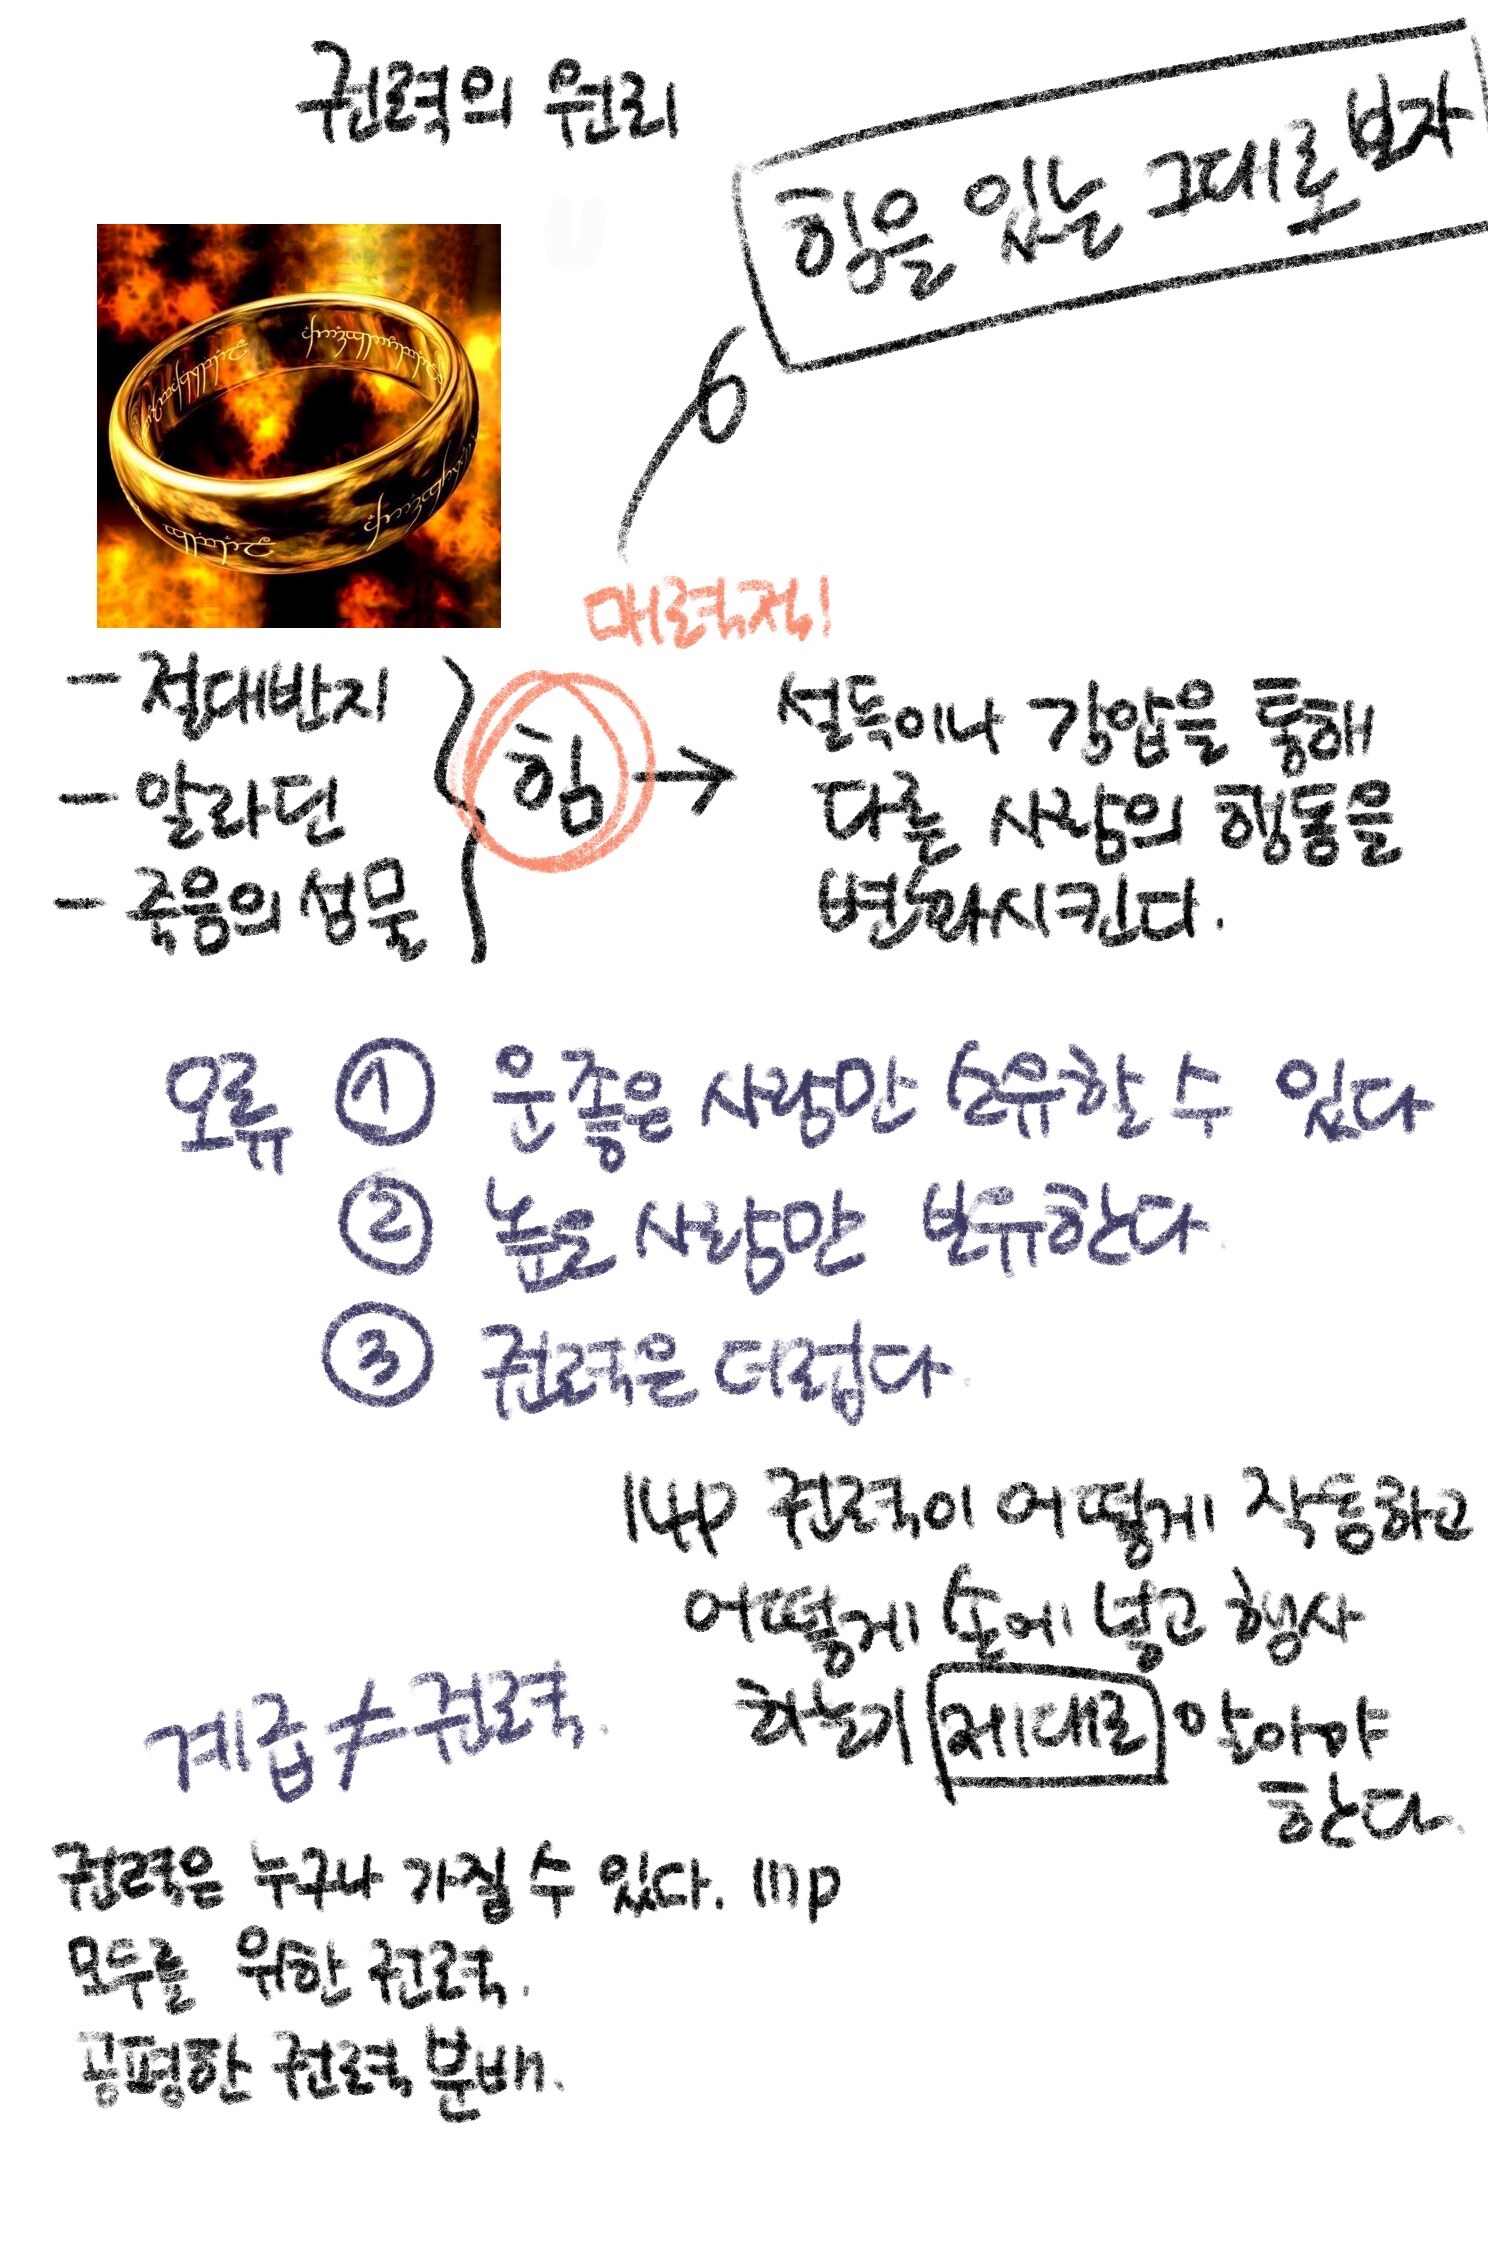 권력의 원리
힘을 있는 그대로 보자
매력적!
- 절대반지
- 알라딘
- 죽음의 성물
힘 → 설득이나 강압을 통해
다른 사람의 행동을
변화시킨다.
오류 ① 운좋은 사람만 소유할 수 있다
② 높은 사람만 보유한다
③ 권력은 더럽다
14p 권력이 어떻게 작동하고
어떻게 손에 넣고 행사
하는지 제대로 알아야
한다.
계급 ≠ 권력.
권력은 누구나 가질 수 있다. 17p
모두를 위한 권력.
공평한 권력 분배.